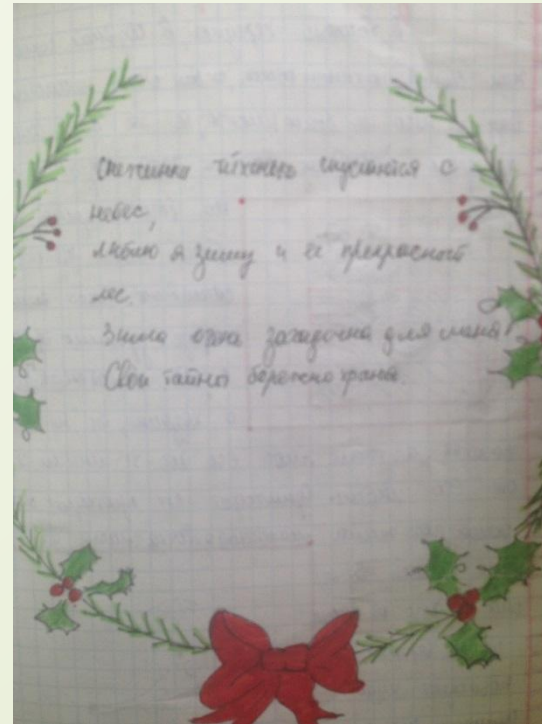 Снежинки тихонько спускаются с
небес,
люблю я зиму и её прекрасный
лес.
Зима очна загадочна для меня
Свои тайны бережно храня.